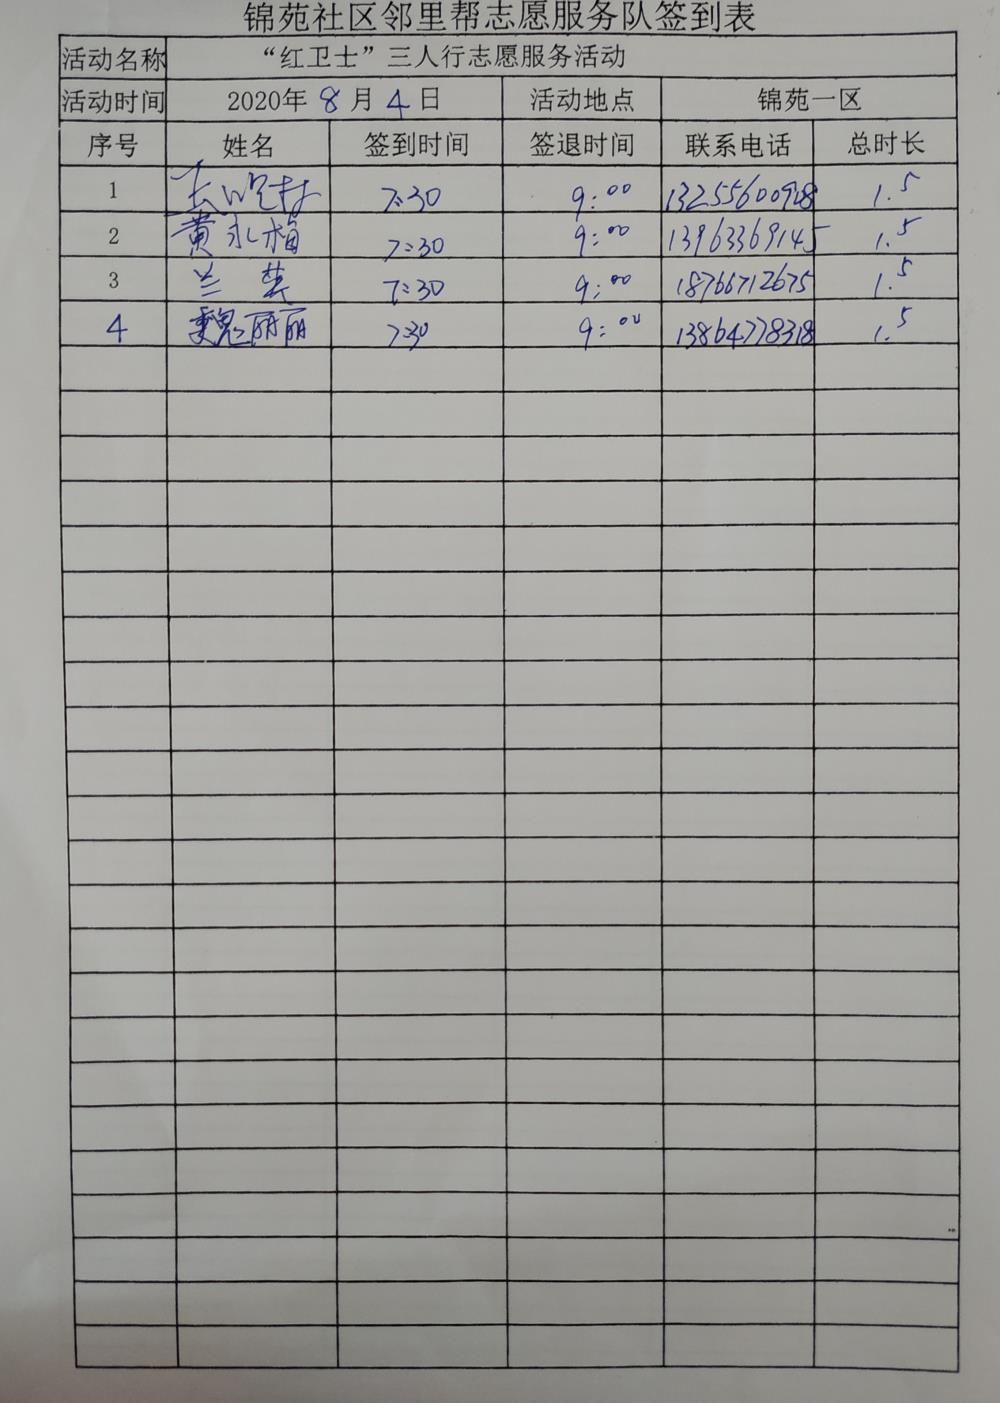 锦苑社区邻里帮志愿服务队签到表
活动名称 “红卫士”三人行志愿服务活动
活动时间 2020年 8 月 4 日 活动地点 锦苑一区
序号 姓名 签到时间 签退时间 联系电话 总时长
1 7:30 9:00 13255600928 1.5
2 黄永梅 7:30 9:00 13963369145 1.5
3 兰英 7:30 9:00 18766712675 1.5
4 魏丽丽 7:30 9:00 13864778318 1.5